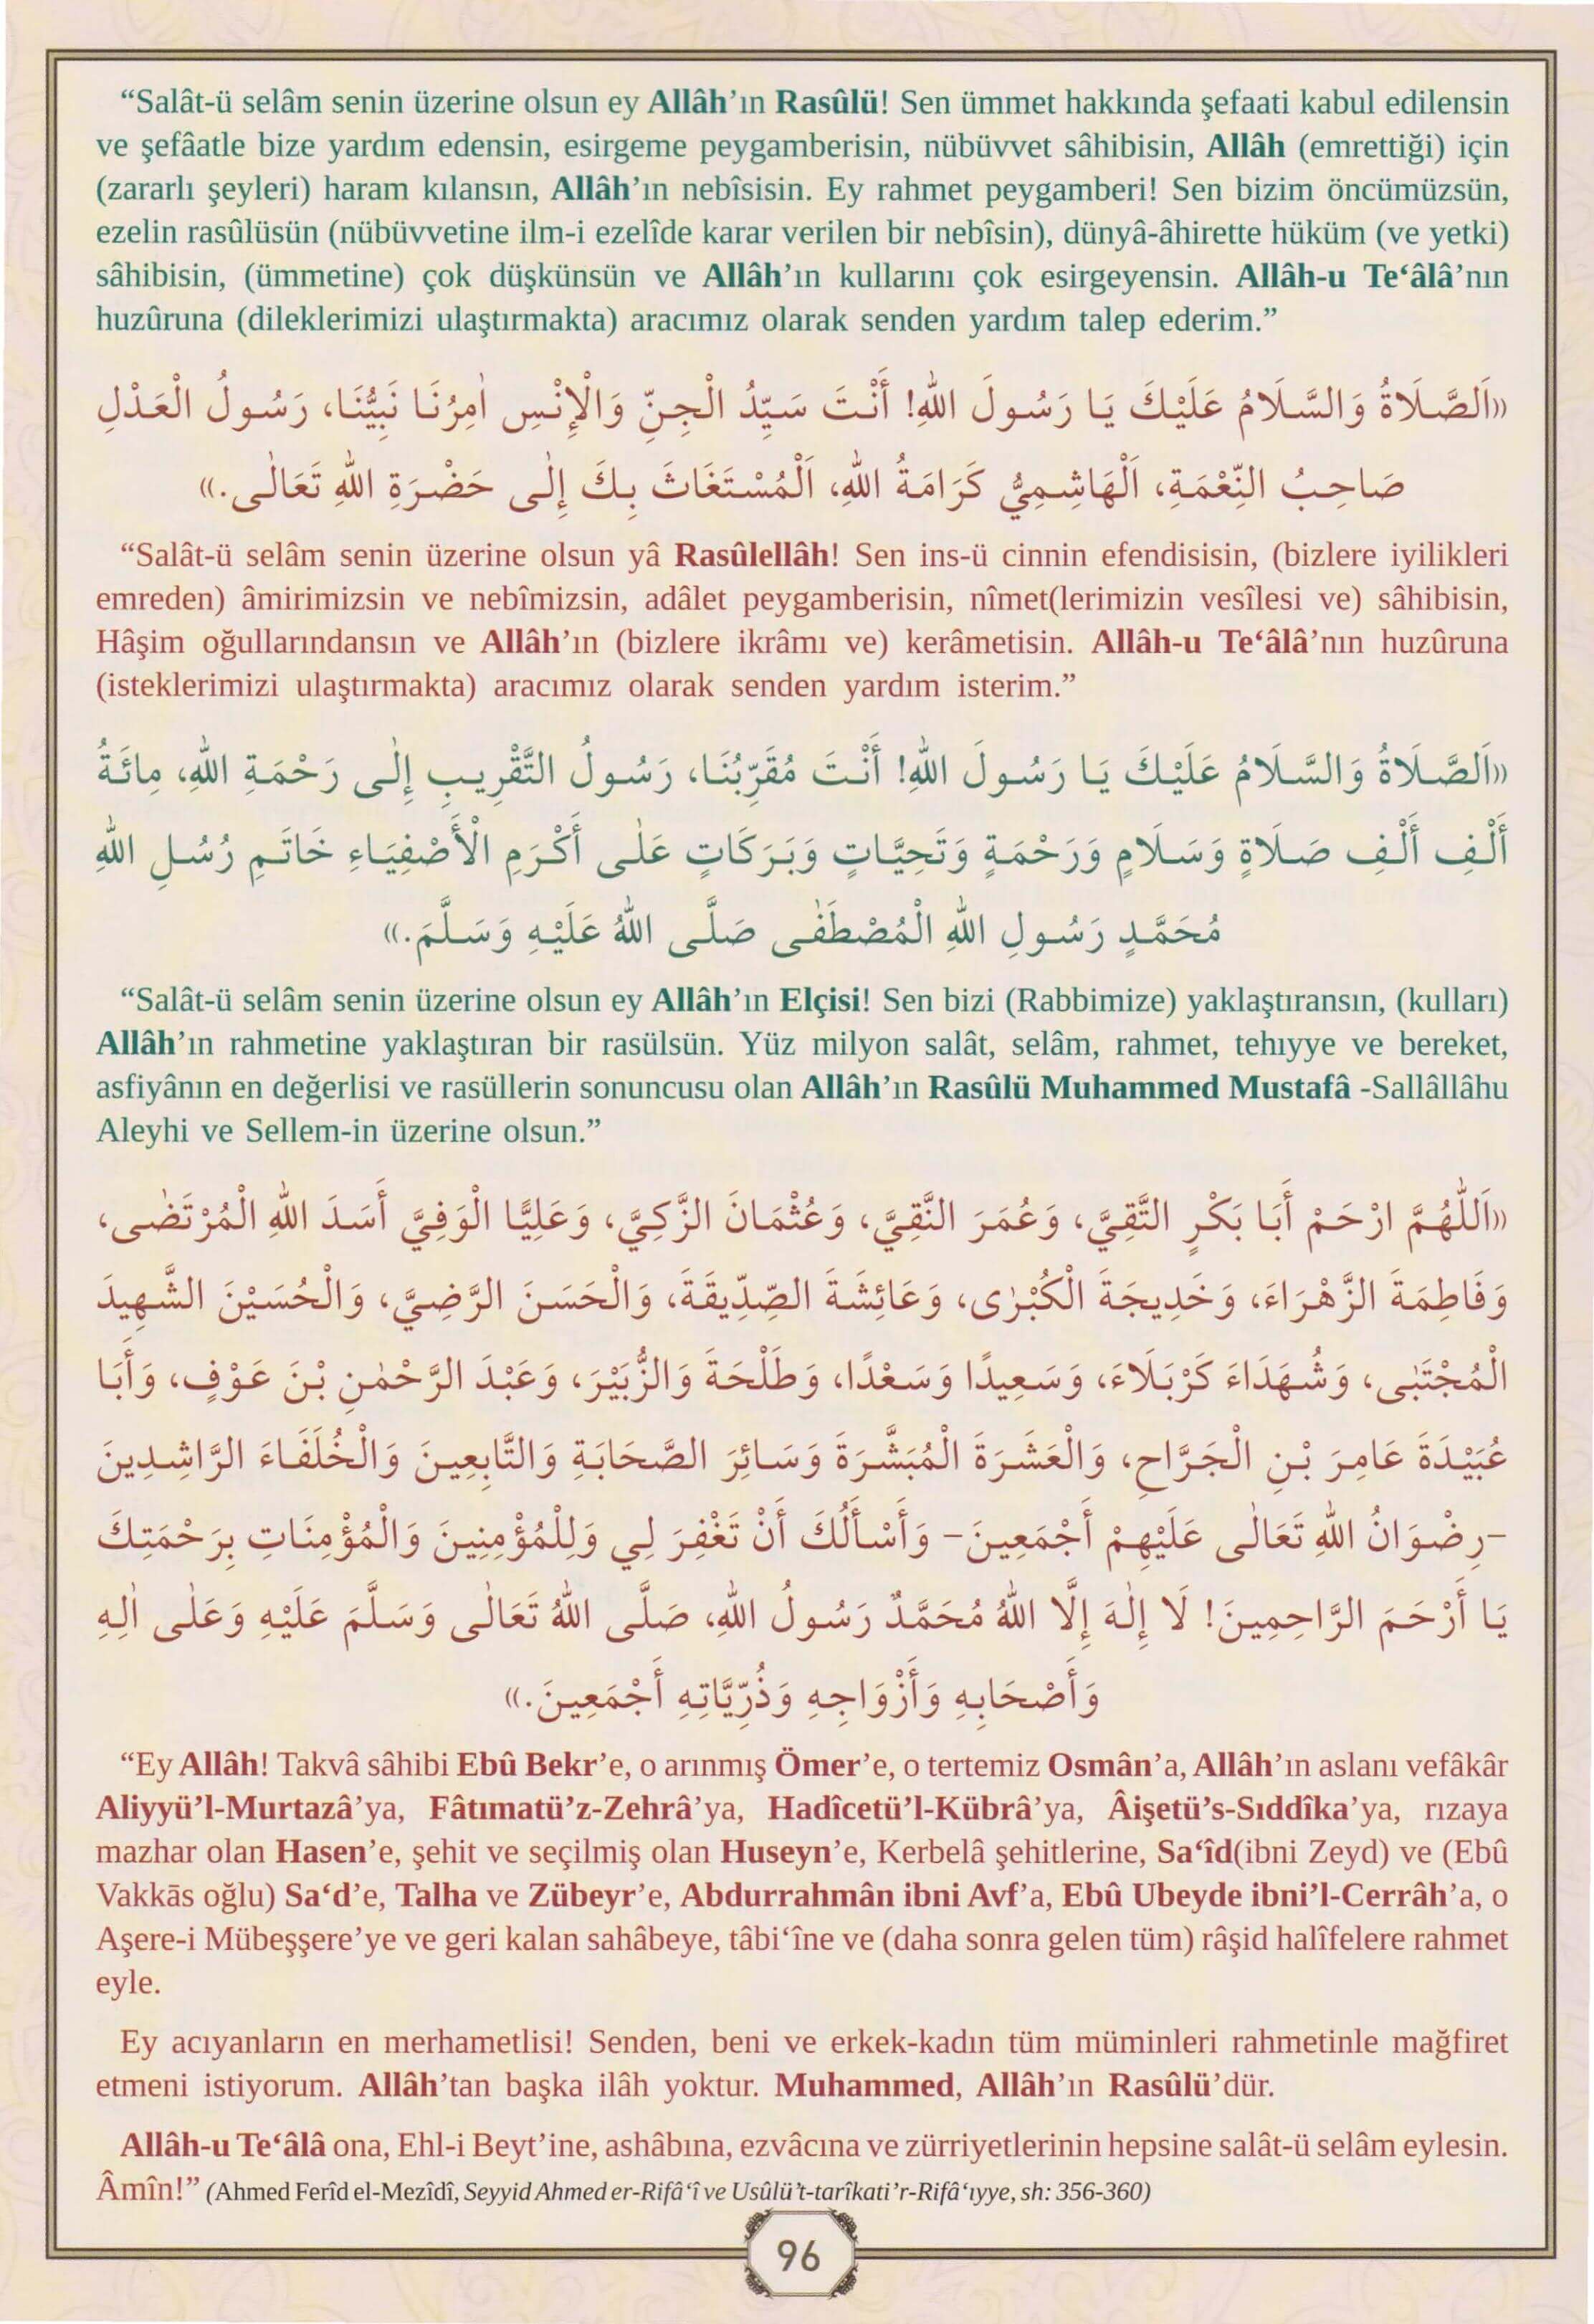 “Salât-ü selâm senin üzerine olsun ey Allâh’ın Rasûlü! Sen ümmet hakkında şefaati kabul edilensin
ve şefâatle bize yardım edensin, esirgeme peygamberisin, nübüvvet sâhibisin, Allâh (emrettiği) için
(zararlı şeyleri) haram kılansın, Allâh’ın nebîsisin. Ey rahmet peygamberi! Sen bizim öncümüzsün,
ezelin rasûlüsün (nübüvvetine ilm-i ezelîde karar verilen bir nebîsin), dünyâ-âhirette hüküm (ve yetki)
sâhibisin, (ümmetine) çok düşkünsün ve Allâh’ın kullarını çok esirgeyensin. Allâh-u Te‘âlâ’nın
huzûruna (dileklerimizi ulaştırmakta) aracımız olarak senden yardım talep ederim.”
«اَلصَّلَاةُ وَالسَّلَامُ عَلَيْكَ يَا رَسُولَ اللهِ! أَنْتَ سَيِّدُ الْجِنِّ وَالْإِنْسِ اٰمِرُنَا نَبِيُّنَا، رَسُولُ الْعَدْلِ
صَاحِبُ النِّعْمَةِ، اَلْهَاشِمِيُّ كَرَامَةُ اللهِ، اَلْمُسْتَغَاثَ بِكَ إِلٰى حَضْرَةِ اللهِ تَعَالٰى.»
“Salât-ü selâm senin üzerine olsun yâ Rasûlellâh! Sen ins-ü cinnin efendisisin, (bizlere iyilikleri
emreden) âmirimizsin ve nebîmizsin, adâlet peygamberisin, nîmet(lerimizin vesîlesi ve) sâhibisin,
Hâşim oğullarındansın ve Allâh’ın (bizlere ikrâmı ve) kerâmetisin. Allâh-u Te‘âlâ’nın huzûruna
(isteklerimizi ulaştırmakta) aracımız olarak senden yardım isterim.”
«اَلصَّلَاةُ وَالسَّلَامُ عَلَيْكَ يَا رَسُولَ اللهِ! أَنْتَ مُقَرِّبُنَا، رَسُولُ التَّقْرِيبِ إِلٰى رَحْمَةِ اللهِ، مِائَةُ
أَلْفِ أَلْفِ صَلَاةٍ وَسَلَامٍ وَرَحْمَةٍ وَتَحِيَّاتٍ وَبَرَكَاتٍ عَلٰى أَكْرَمِ الْأَصْفِيَاءِ خَاتَمِ رُسُلِ اللهِ
مُحَمَّدٍ رَسُولِ اللهِ الْمُصْطَفٰى صَلَّى اللهُ عَلَيْهِ وَسَلَّمَ.»
“Salât-ü selâm senin üzerine olsun ey Allâh’ın Elçisi! Sen bizi (Rabbimize) yaklaştıransın, (kulları)
Allâh’ın rahmetine yaklaştıran bir rasülsün. Yüz milyon salât, selâm, rahmet, tehıyye ve bereket,
asfiyânın en değerlisi ve rasüllerin sonuncusu olan Allâh’ın Rasûlü Muhammed Mustafâ -Sallâllâhu
Aleyhi ve Sellem-in üzerine olsun.”
«اَللّٰهُمَّ ارْحَمْ أَبَا بَكْرٍ التَّقِيَّ، وَعُمَرَ النَّقِيَّ، وَعُثْمَانَ الزَّكِيَّ، وَعَلِيًّا الْوَفِيَّ أَسَدَ اللهِ الْمُرْتَضٰى،
وَفَاطِمَةَ الزَّهْرَاءَ، وَخَدِيجَةَ الْكُبْرٰى، وَعَائِشَةَ الصِّدِّيقَةَ، وَالْحَسَنَ الرَّضِيَّ، وَالْحُسَيْنَ الشَّهِيدَ
الْمُجْتَبٰى، وَشُهَدَاءَ كَرْبَلَاءَ، وَسَعِيدًا وَسَعْدًا، وَطَلْحَةَ وَالزُّبَيْرَ، وَعَبْدَ الرَّحْمٰنِ بْنَ عَوْفٍ، وَأَبَا
عُبَيْدَةَ عَامِرَ بْنِ الْجَرَّاحِ، وَالْعَشَرَةَ الْمُبَشَّرَةَ وَسَائِرَ الصَّحَابَةِ وَالتَّابِعِينَ وَالْخُلَفَاءَ الرَّاشِدِينَ
-رِضْوَانُ اللهِ تَعَالٰى عَلَيْهِمْ أَجْمَعِينَ- وَأَسْأَلُكَ أَنْ تَغْفِرَ لِي وَلِلْمُؤْمِنِينَ وَالْمُؤْمِنَاتِ بِرَحْمَتِكَ
يَا أَرْحَمَ الرَّاحِمِينَ! لَا إِلٰهَ إِلَّا اللهُ مُحَمَّدٌ رَسُولُ اللهِ، صَلَّى اللهُ تَعَالٰى وَسَلَّمَ عَلَيْهِ وَعَلٰى اٰلِهِ
وَأَصْحَابِهِ وَأَزْوَاجِهِ وَذُرِّيَّاتِهِ أَجْمَعِينَ.»
“Ey Allâh! Takvâ sâhibi Ebû Bekr’e, o arınmış Ömer’e, o tertemiz Osmân’a, Allâh’ın aslanı vefâkâr
Aliyyü’l-Murtazâ’ya, Fâtımatü’z-Zehrâ’ya, Hadîcetü’l-Kübrâ’ya, Âişetü’s-Sıddîka’ya, rızaya
mazhar olan Hasen’e, şehit ve seçilmiş olan Huseyn’e, Kerbelâ şehitlerine, Sa‘îd(ibni Zeyd) ve (Ebû
Vakkās oğlu) Sa‘d’e, Talha ve Zübeyr’e, Abdurrahmân ibni Avf’a, Ebû Ubeyde ibni’l-Cerrâh’a, o
Aşere-i Mübeşşere’ye ve geri kalan sahâbeye, tâbi‘îne ve (daha sonra gelen tüm) râşid halîfelere rahmet
eyle.
Ey acıyanların en merhametlisi! Senden, beni ve erkek-kadın tüm müminleri rahmetinle mağfiret
etmeni istiyorum. Allâh’tan başka ilâh yoktur. Muhammed, Allâh’ın Rasûlü’dür.
Allâh-u Te‘âlâ ona, Ehl-i Beyt’ine, ashâbına, ezvâcına ve zürriyetlerinin hepsine salât-ü selâm eylesin.
Âmîn!” (Ahmed Ferîd el-Mezîdî, Seyyid Ahmed er-Rifâ‘î ve Usûlü’t-tarîkati’r-Rifâ‘ıyye, sh: 356-360)
96